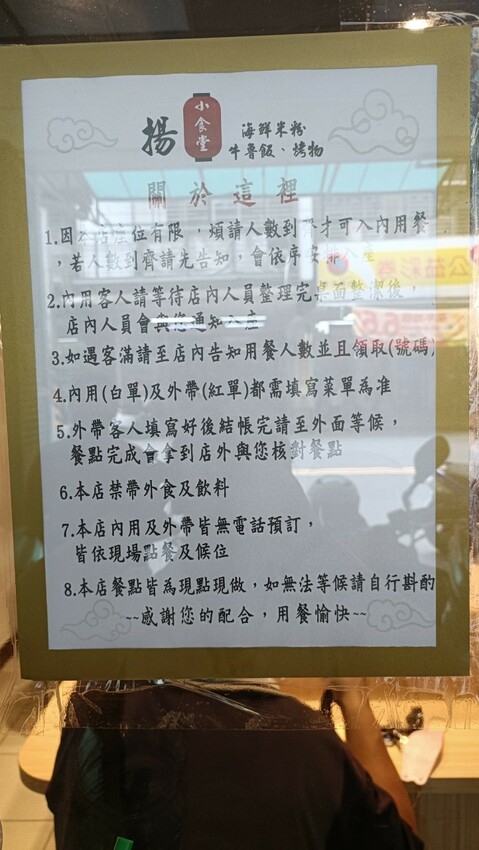 揚 小食堂 海鮮米粉
牛魯飯、烤物
關於這裡
1.因本店座位有限，煩請人數到齊才可入內用餐
，若人數到齊請先告知，會依序安排入座
2.內用客人請等待店內人員整理完桌面整潔後，
店內人員會與您通知入座
3.如遇客滿請至店內告知用餐人數並且領取(號碼)
4.內用(白單)及外帶(紅單)都需填寫菜單為准
5.外帶客人填寫好後結帳完請至外面等候，
餐點完成會拿到店外與您核對餐點
6.本店禁帶外食及飲料
7.本店內用及外帶皆無電話預訂，
皆依現場點餐及候位
8.本店餐點皆為現點現做，如無法等候請自行斟酌
~~感謝您的配合，用餐愉快~~
公益彩券